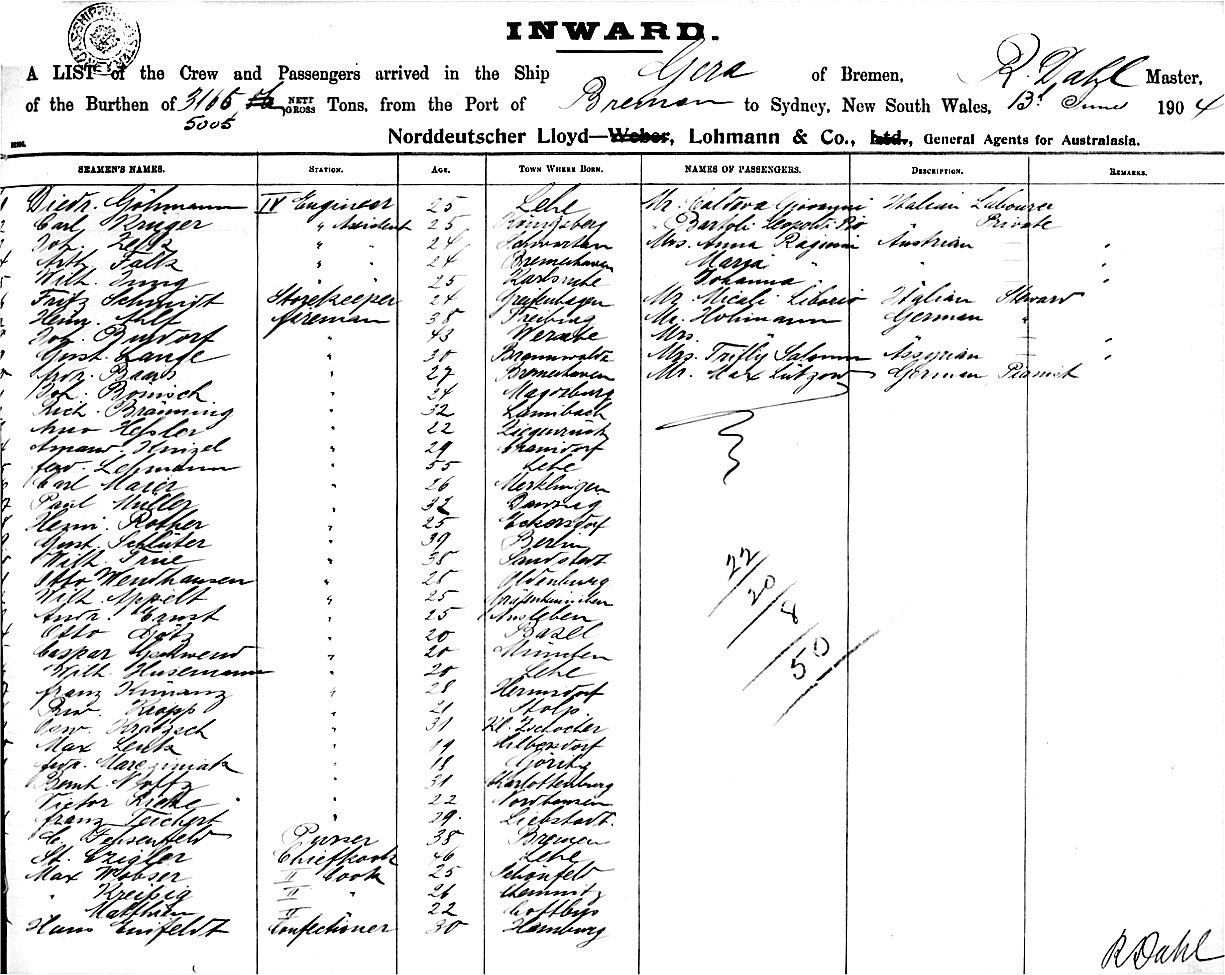 INWARD.
A LIST of the Crew and Passengers arrived in the Ship Gera of Bremen, R. Dahl Master,
of the Burthen of 3165 NETT GROSS Tons, from the Port of Bremen to Sydney, New South Wales, 13 June 1904
5005
Norddeutscher Lloyd—Weber, Lohmann & Co., Ltd., General Agents for Australasia.
SEAMEN'S NAMES. STATION. AGE. TOWN WHERE BORN. NAMES OF PASSENGERS. DESCRIPTION. REMARKS.
Diedr. Göhmann IV Engineer 25 Lehe Mr. Giovanni Italian Labourer
Carl Kruger " Assistent 25 Königsberg " Bartoli Leopoldi Pio Private
Joh. " " 24 Schwartau Mrs. Anna Austrian "
Arth. Falk " " 24 Bremerhaven " Maria " "
Wilh. Jung 25 Karlsruhe " Johanna " "
Fritz Schmidt Storekeeper 24 Greifenhagen Mr. Micali Liborio Italian Steward
Heinr. Ahlf fireman 38 Freiburg Mr. Hohmann German "
Joh. " 43 Mrs. "
Gust. Lange " 30 Braunswalde Mrs. Salomon Assyrian "
Baars " 27 Bremerhaven Mr. Max Lützow German Pianist
Joh. Bonisch " 24 Magdeburg
Rich. Bräuning " 32
Hessler " 22 Ziegenrück
Armand. Hinzel " 29
ferd. Lehmann " 55 Lehe
Carl Maier " 26 Merklingen
Paul Müller " 32 Danzig
Herm. Rother " 25 Eckersdorf
Gust. Schlüter " 39 Berlin
Wilh. True " 38 Sandstedt
Otto Wendhausen " 28 Oldenburg
22
Wilh. Appelt " 25 Gräfenhainichen
20
Andr. Ernst " 25 Ausleben
8
Otto Götz " 20 Basel
Caspar Gschwend " 20 München
50
Wilh. Husemann " 20 Lehe
franz Kumanz " 28 Hermsdorf
Kropp " 21 Stolp
Osw. Kratzsch " 31 Kl. Zschocher
Max Lenk " 19 Hilbersdorf
Marciniak " 18 Göritz
Bernh. " 31 Karlottenburg
Victor " 22 Nordhausen
franz Teichert " 39 Liebstadt.
C. Purser 38 Bremen
St. Chiefkook 46 Lehe
Max Wobser II Cook 25 Schönfeld
" Kreißig II " 26 Chemnitz
" Matthien II 22 Cottbus
Hans Einfeldt Confectioner 30 Hamburg
R Dahl